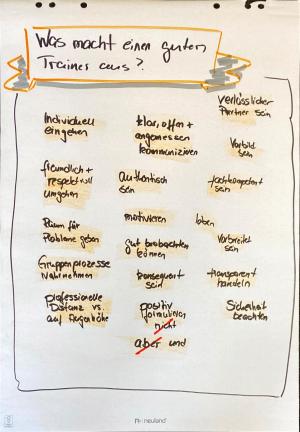 Was macht einen guten
Trainer aus?
Individuell
eingehen
freundlich +
respektvoll
umgehen
Raum für
Probleme geben
Gruppenprozesse
wahrnehmen
professionelle
Distanz vs.
auf Augenhöhe
klar, offen +
angemessen
kommunizieren
authentisch
sein
motivieren
gut beobachten
können
konsequent
sein
positiv
formulieren
nicht
aber und
verlässlicher
Partner sein
Vorbild
sein
fachkompetent
sein
loben
Vorbereitet
sein
transparent
handeln
Sicherheit
beachten
neuland